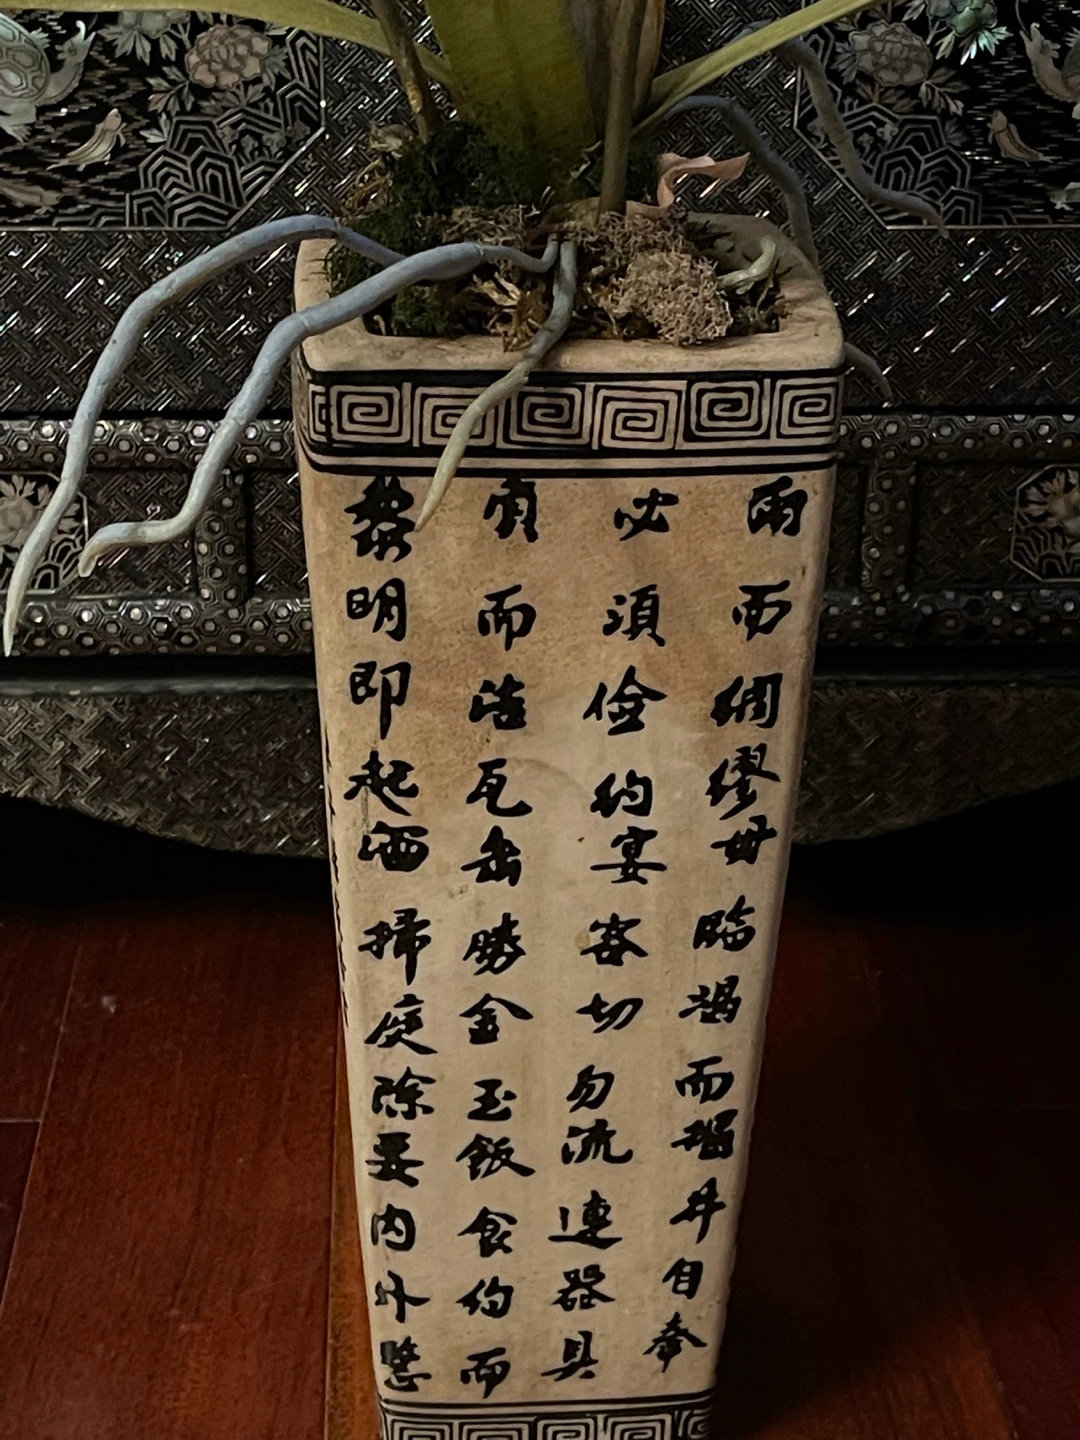 雨而綢繆毋臨渴而掘井自奉
必須儉約宴客切勿流連器具
而洁瓦缶勝金玉飯食約而
黎明即起洒掃庭除要内外整